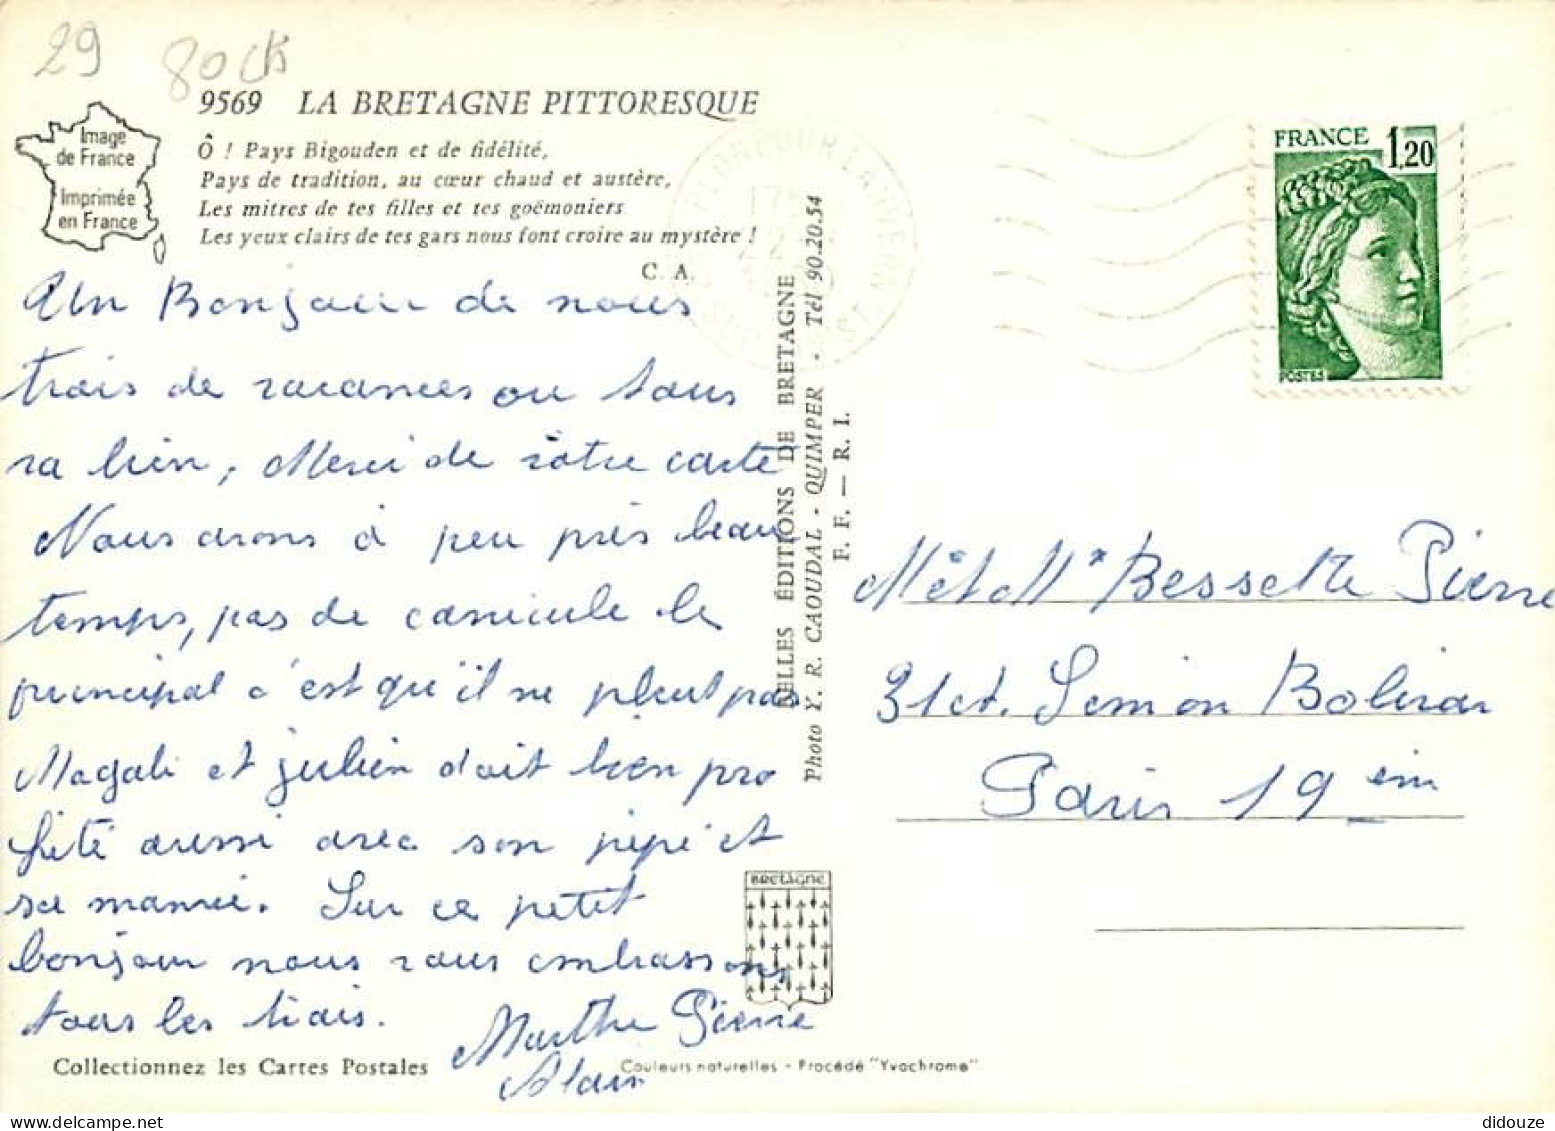 29
80ck
9569 LA BRETAGNE PITTORESQUE
Image
de France
Imprimée
en France
Ô ! Pays Bigouden et de fidélité,
Pays de tradition, au cœur chaud et austère,
Les mitres de tes filles et tes goëmoniers
Les yeux clairs de tes gars nous font croire au mystère !
C. A.
Un Bonjour de nous
trois de vacances ou tous
va bien, Merci de votre carte
Nous avons à peu près beau
temps, pas de canicule le
principal c'est qu'il ne pleut pas
Magali et julien doit bien pro
fité aussi avec son pépé et
sa mamie. Sur ce petit
bonjour nous vous embrassons
tous les trois.
Marthe Pierre
Alain
Collectionnez les Cartes Postales
Couleurs naturelles - Procédé "Yvochrome"
BELLES ÉDITIONS DE BRETAGNE
Photo Y. R. CAOUDAL - QUIMPER - Tél 90.20.54
F. F. — R. I.
BRETAGNE
FRANCE 1,20
POSTES
Mr et Mme Bessette Pierre
31 ct. Semion Bolivar
Paris 19 ém
didouze